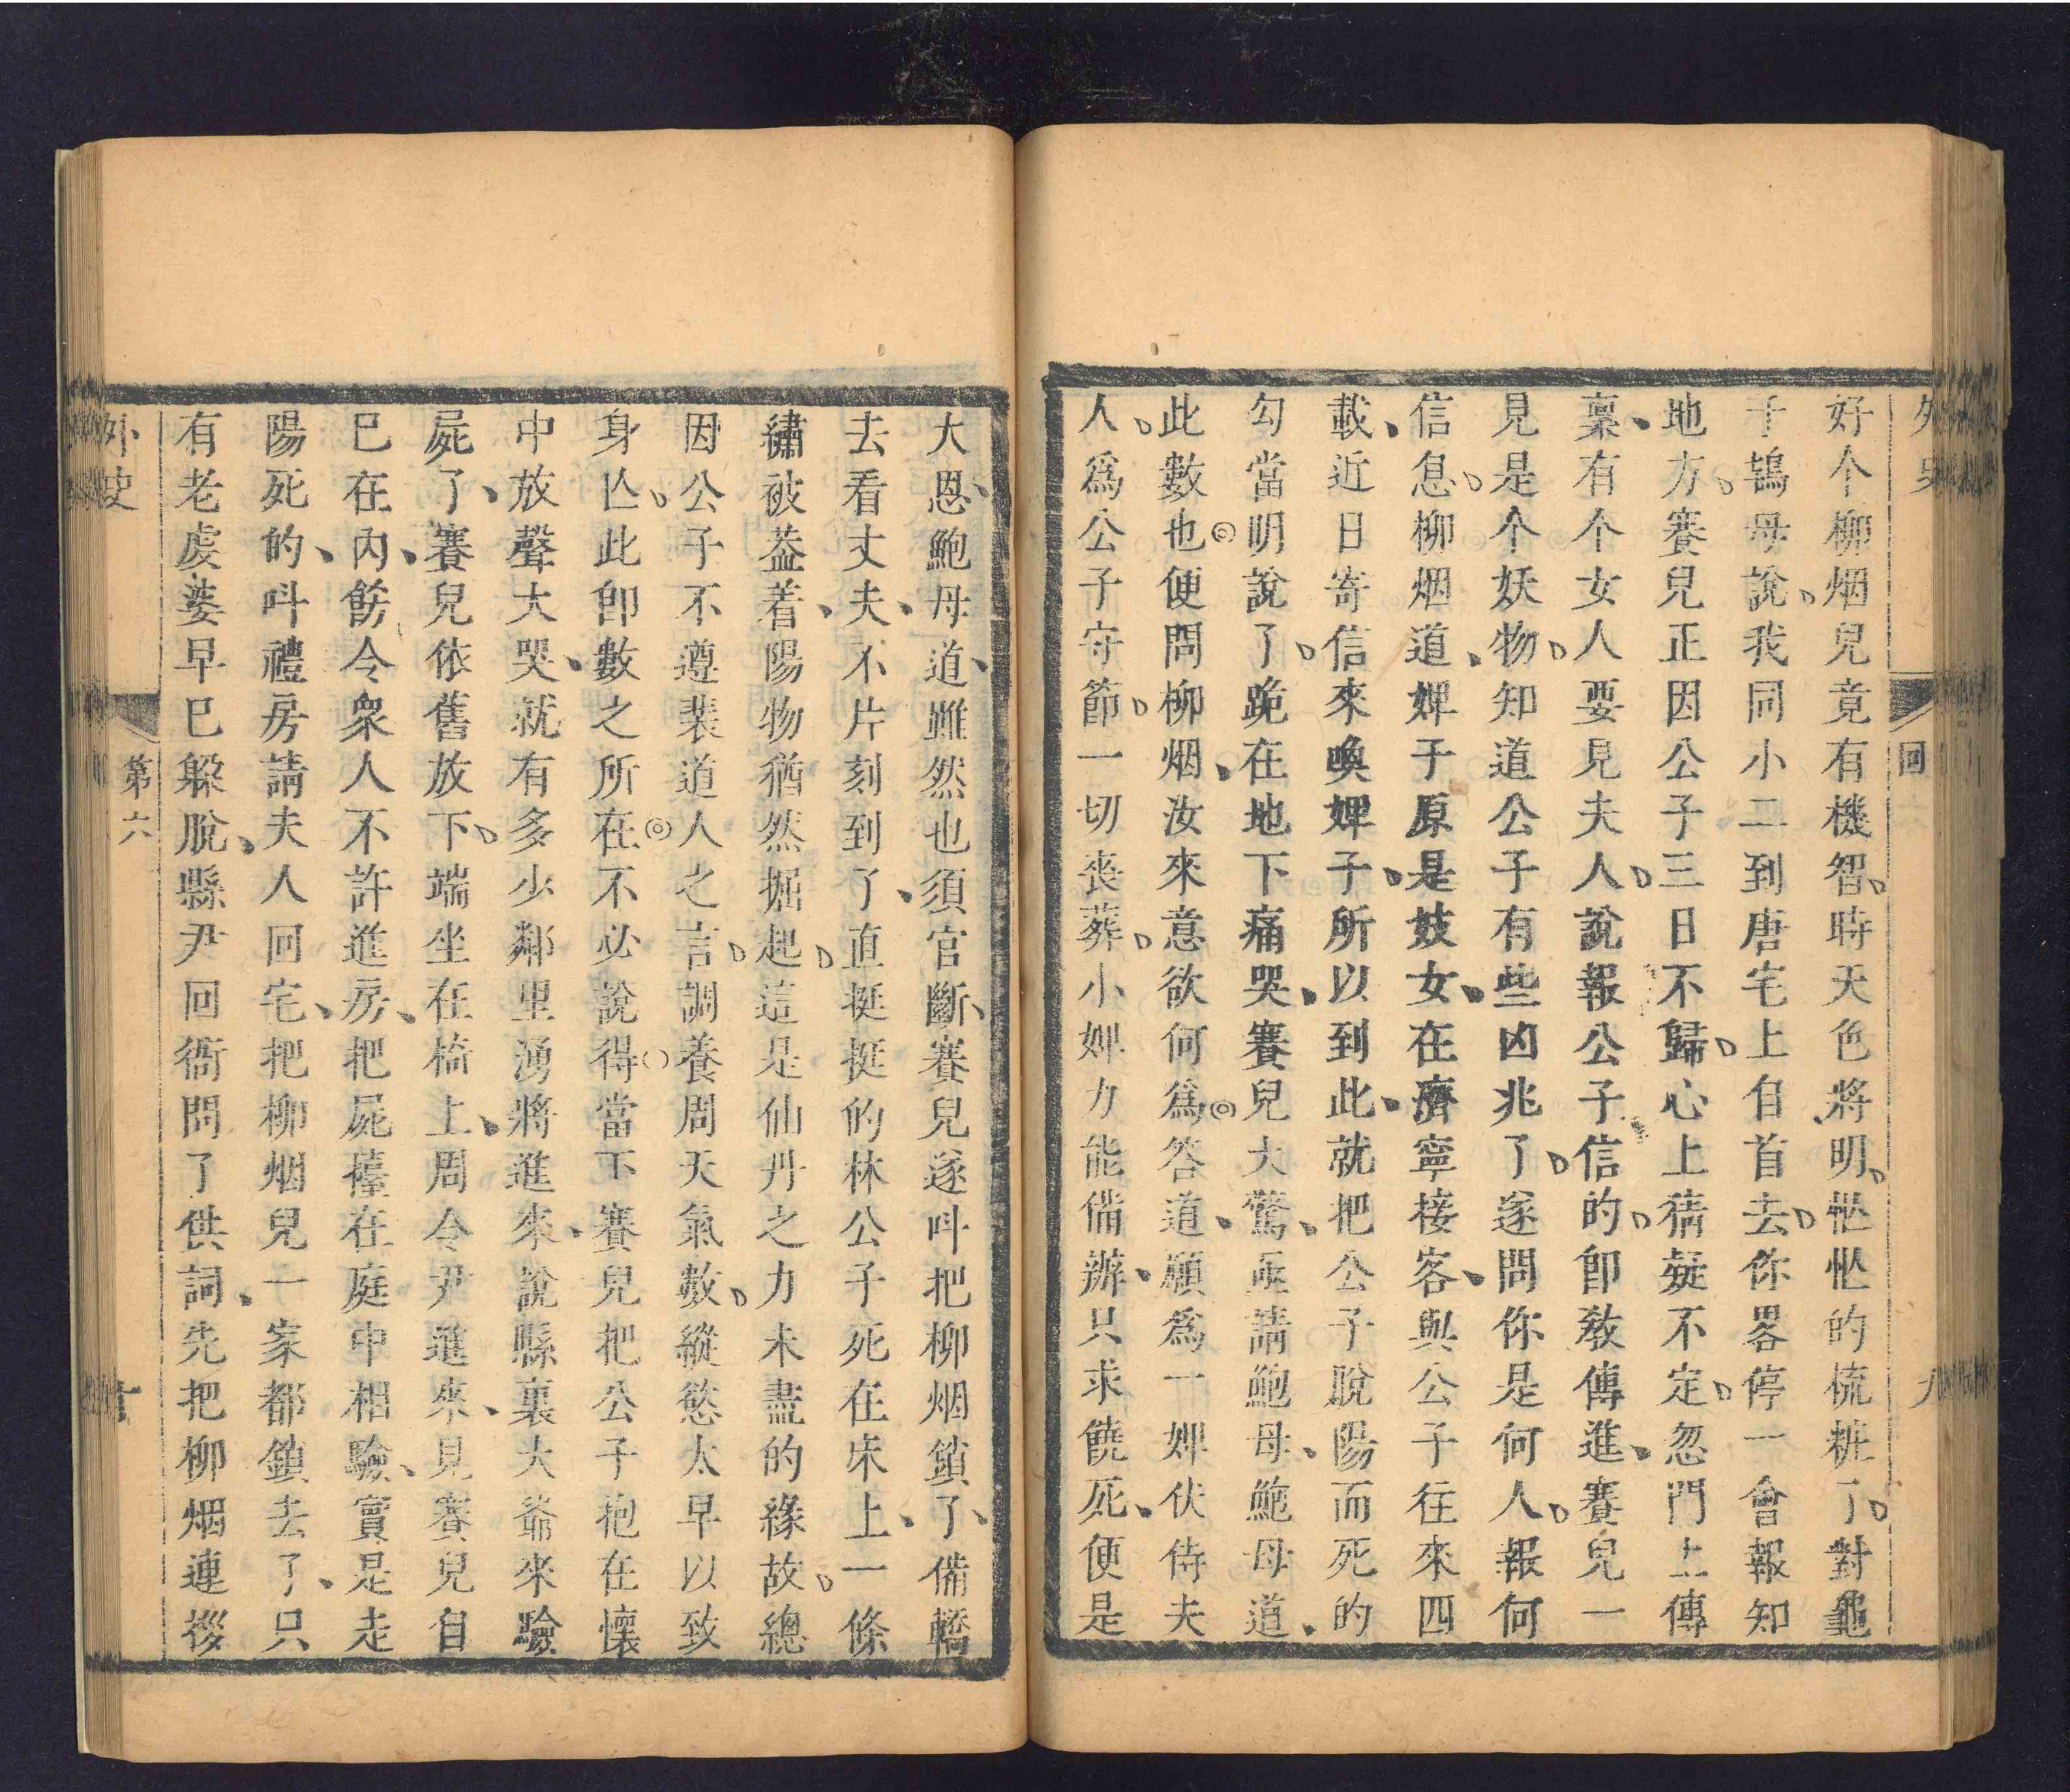 外史
回
九
好个柳烟兒竟有機智時天色將明惄惄的梳粧了對龜
子鴇母說我同小二到唐宅上自首去你畧停一會報知
地方賽兒正因公子三日不歸心上猜疑不定忽門上傳
稟有个女人要見夫人說報公子信的卽敎傳進賽兒一
見是个妖物知道公子有些凶兆了遂問你是何人報何
信息柳烟道婢子原是妓女在濟寧接客與公子往來四
載近日寄信來喚婢子所以到此就把公子脫陽而死的
勾當明說了跪在地下痛哭賽兒大驚亟請鮑母鮑母道
此數也便問柳烟汝來意欲何爲答道願爲一婢伏侍夫
人爲公子守節一切喪葬小婢力能備辦只求饒死便是
大恩鮑母道雖然也須官斷賽兒遂呌把柳烟鎖了備轎
去看丈夫不片刻到了直挺挺的林公子死在床上一條
繡被葢着陽物猶然掘起這是仙丹之力未盡的緣故總
因公子不遵裴道人之言調養周天氣數縱慾太早以致
身亾此卽數之所在不必說得當下賽兒把公子抱在懷
中放聲大哭就有多少鄰里湧將進來說縣裏大爺來驗
屍了賽兒依舊放下端坐在椅上周令尹進來見賽兒自
巳在內飭令衆人不許進房把屍擡在庭中相驗實是走
陽死的呌禮房請夫人回宅把柳烟兒一家都鎖去了只
有老虔婆早巳躱脫縣尹回衙問了供詞先把柳烟連拶
外史
第六
十